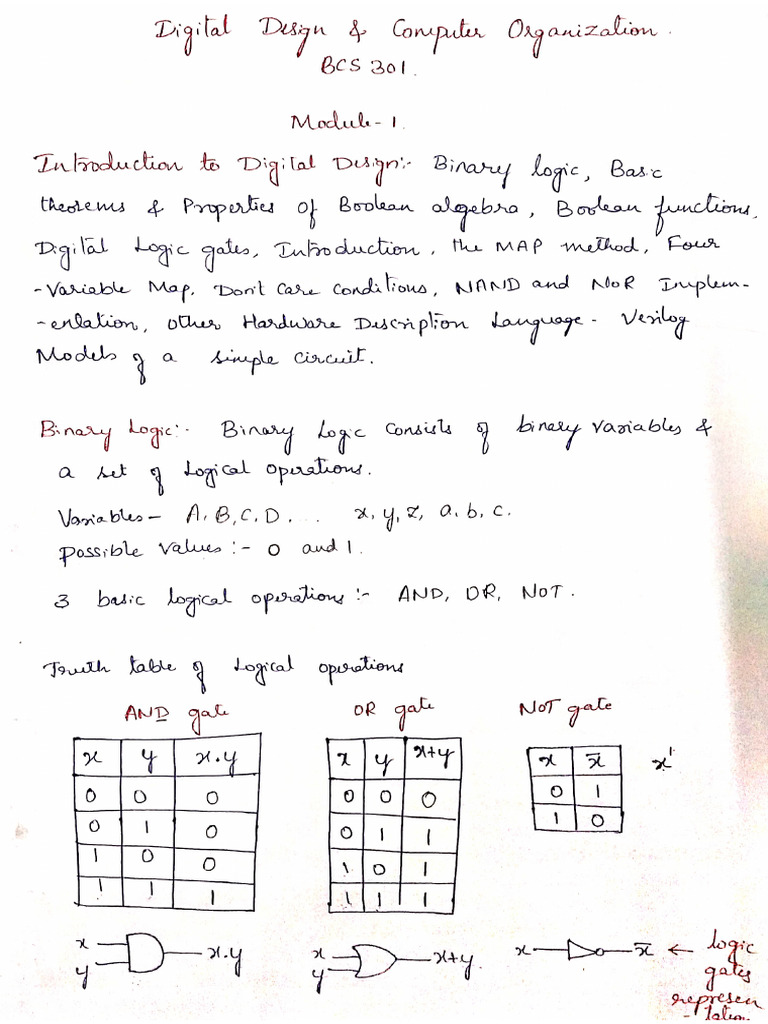 Digital Design & Computer Organization.
BCS 301.
Module-1.
Introduction to Digital Design:- Binary logic, Basic
theorems & Properties of Boolean algebra, Boolean functions,
Digital Logic gates, Introduction, the MAP method, Four
-Variable Map, Don't Care Conditions, NAND and NOR Implem-
-entation, other Hardware Description Language - Verilog
Models of a simple circuit.
Binary Logic:- Binary Logic consists of binary variables &
a set of Logical operations.
Variables- A, B, C, D.... x, y, z, a, b, c.
Possible Values:- 0 and 1.
3 basic logical operations:- AND, OR, NOT.
Truth table of Logical operations
AND gate OR gate NOT gate
x y x.y x y x+y x x̄ x'
0 0 0 0 0 0 0 1
0 1 0 0 1 1 1 0
1 0 0 1 0 1
1 1 1 1 1 1
x y x.y x y x+y. x x̄ ← logic
gates
represen
-tation